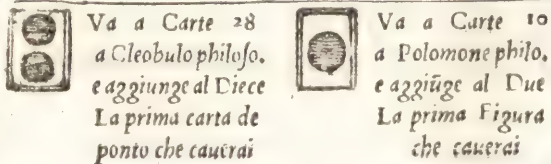 Va a Carte 28
a Cleobulo philoſo.
e aggiunge al Diece
La prima carta de
ponto che cauerai
Va a Carte 10
a Polomone philo.
e aggiūge al Due
La prima Figura
che cauerai